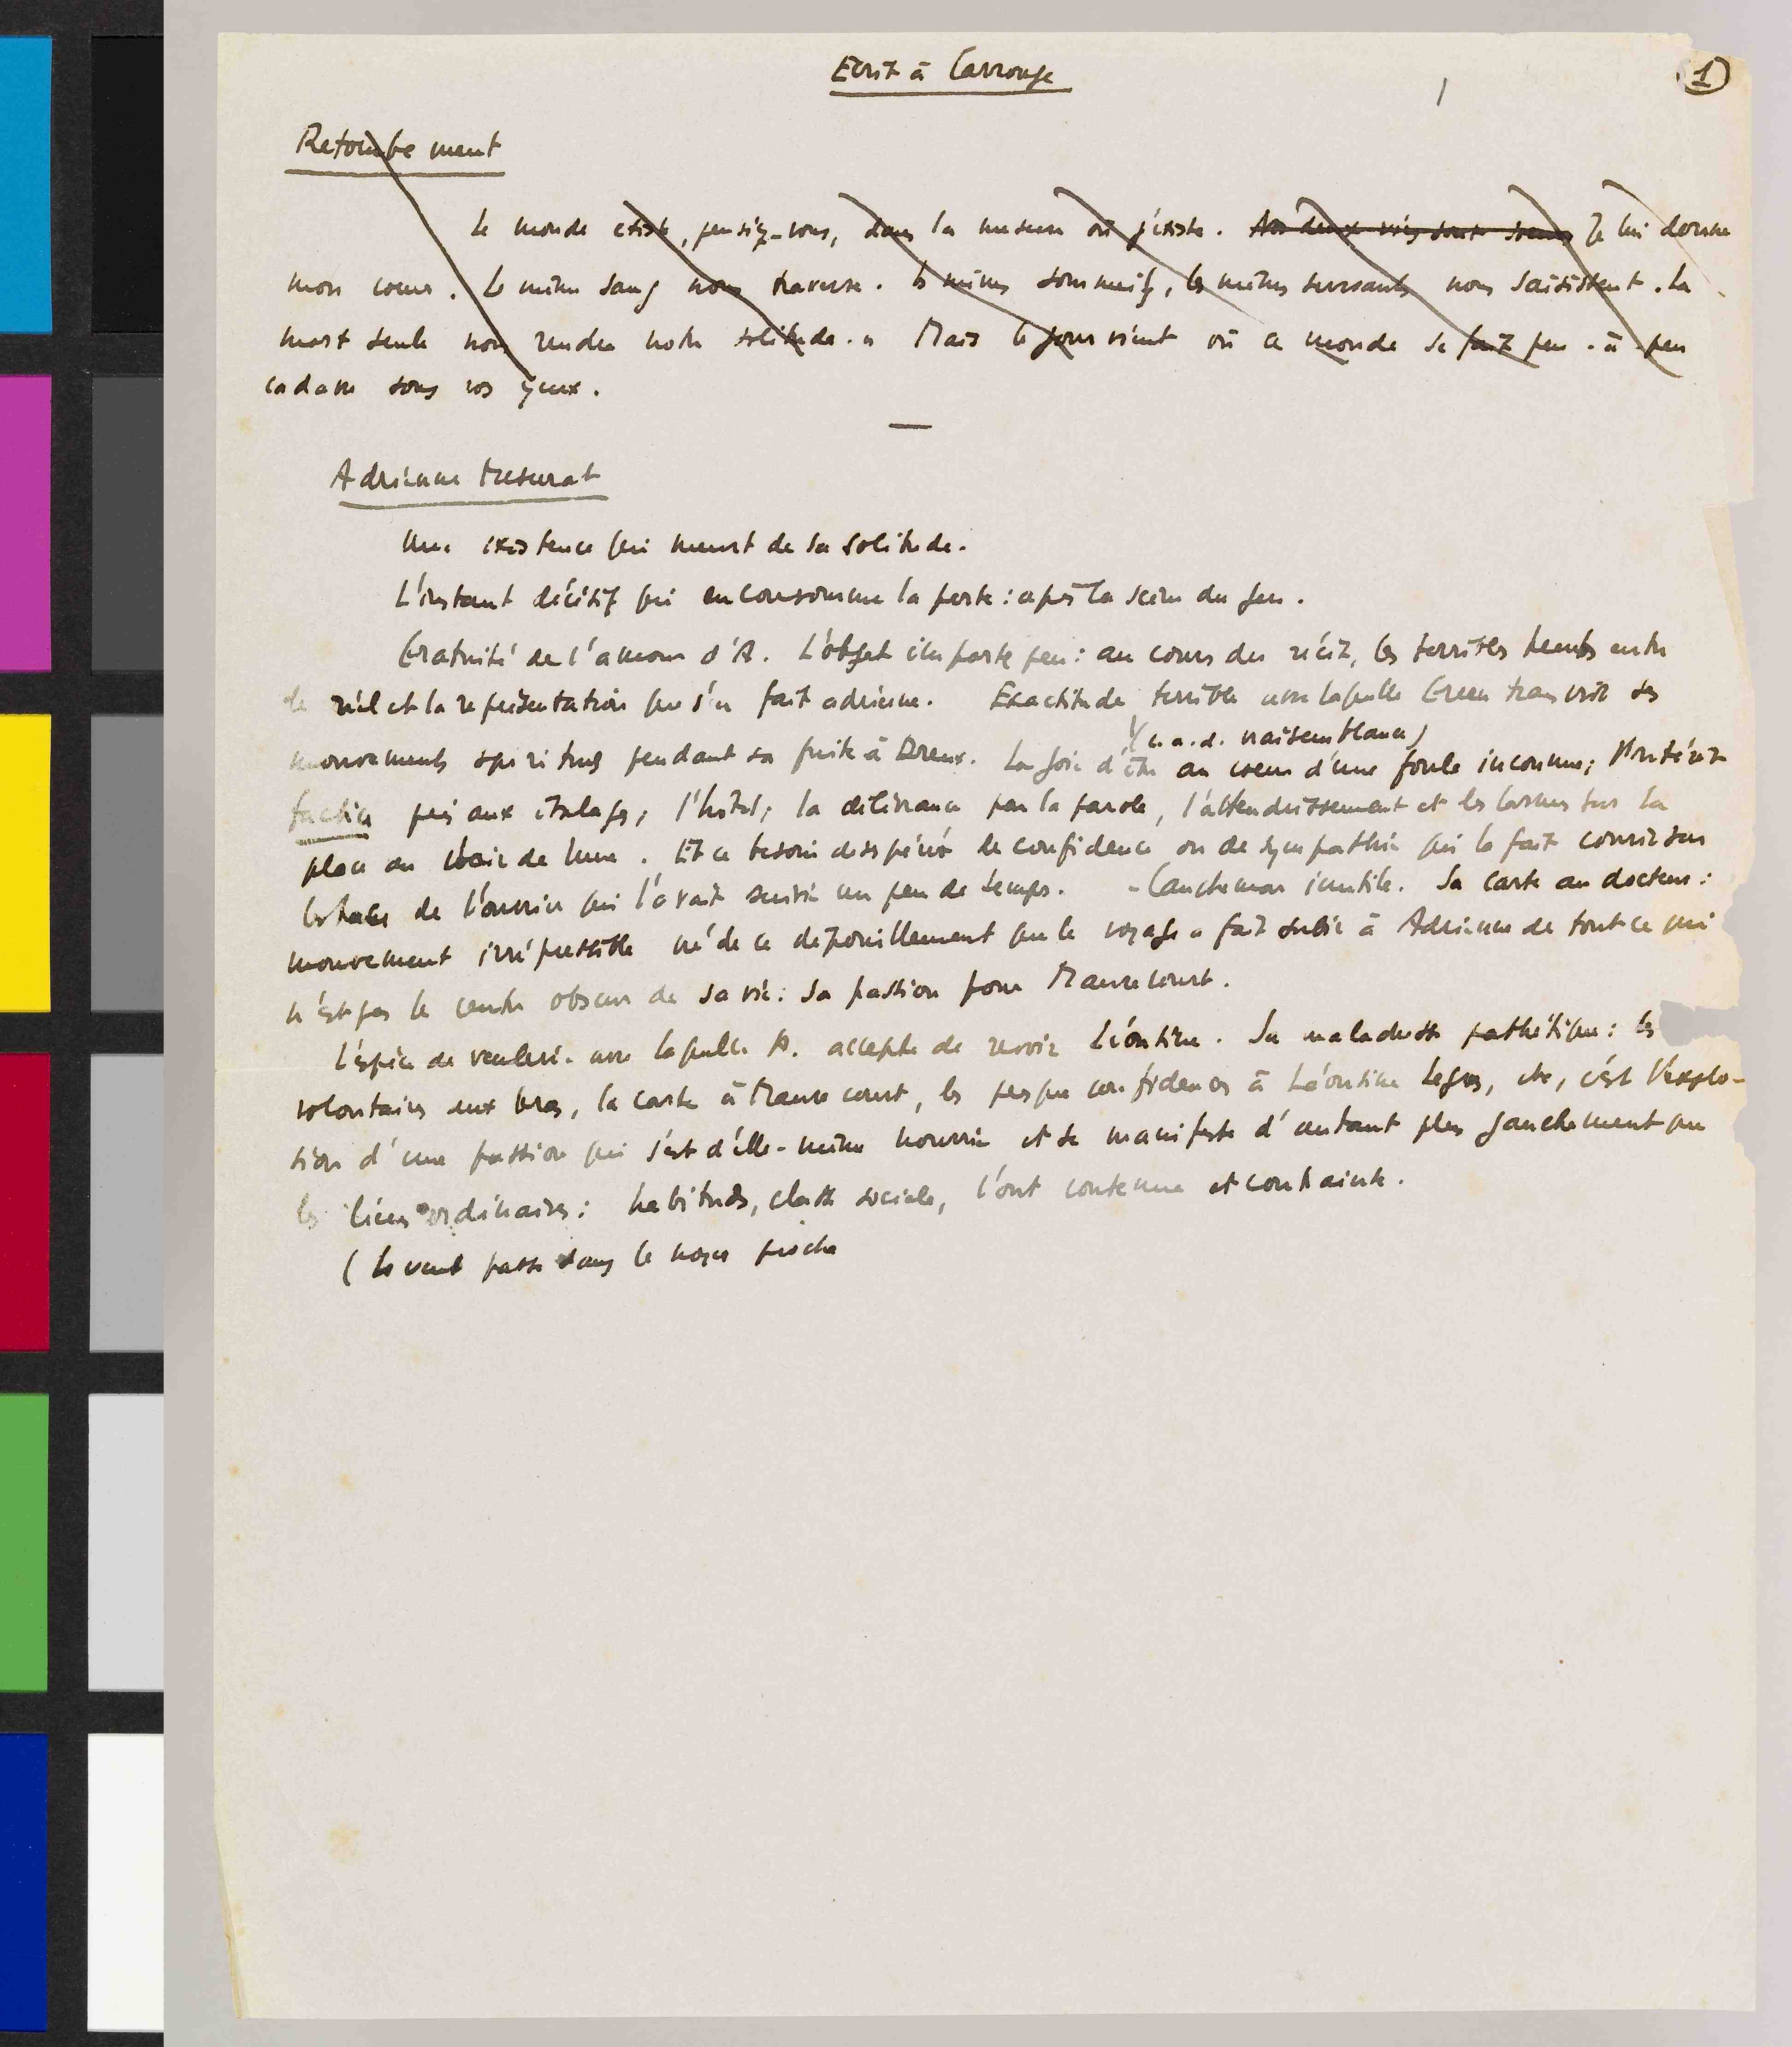 Ecrit à Carrouge
1
Retombement
Le monde existe, pensiez-vous, dans la mesure où j'existe. Nos deux vies sont soeurs Je lui donne
mon coeur. Le même sang nous traverse. Les mêmes sommeils, les mêmes sursauts nous saisissent. La
mort seule nous rendra notre solitude. » Mais le jour vient où ce monde se fait peu-à-peu
cadavre sous vos yeux.
Adrienne Mesurat
Une existence qui meurt de sa solitude.
L'instant décisif qui en consomme la perte : après la scène du jeu.
Gratuité de l'amour d'A. L'objet importe peu : au cours du récit, les terribles heurts entre
le réel et la représentation que s'en fait adrienne. Exactitude terrible avec laquelle Green transcrit les
(c.a.d. vraisemblance)
mouvements spirituels pendant sa fuite à Dreux. La joie d'être au coeur d'une foule inconnue ; l'intérêt
factice pris aux étalages ; l'hôtel ; la délivrance par la parole, l'attendrissement et les larmes sur la
place au clair de lune. Et ce besoin désespéré de confidence ou de sympathie qui la fait courir sur
les traces de l'ouvrier qui l'avait suivie un peu de temps. - Cauchemar inutile. Sa carte au docteur :
mouvement irrépressible né de ce dépouillement que le voyage a fait subir à Adrienne de tout ce qui
n'est pas le centre obscur de sa vie : sa passion pour Maurecourt.
L'espèce de veulerie avec laquelle A. accepte de revoir Léontine. Sa maladresse pathétique : les
volontaires aux bras, la carte à Maurecourt, les presque confidences à Léontine Legras, etc, c'est l'explo-
sion d'une passion qui s'est d'elle-même nourrie et se manifeste d'autant plus gauchement que
les liens ordinaires : habitudes, classe sociale, l'ont contenue et contrainte.
( Le vent passe dans le noyer proche